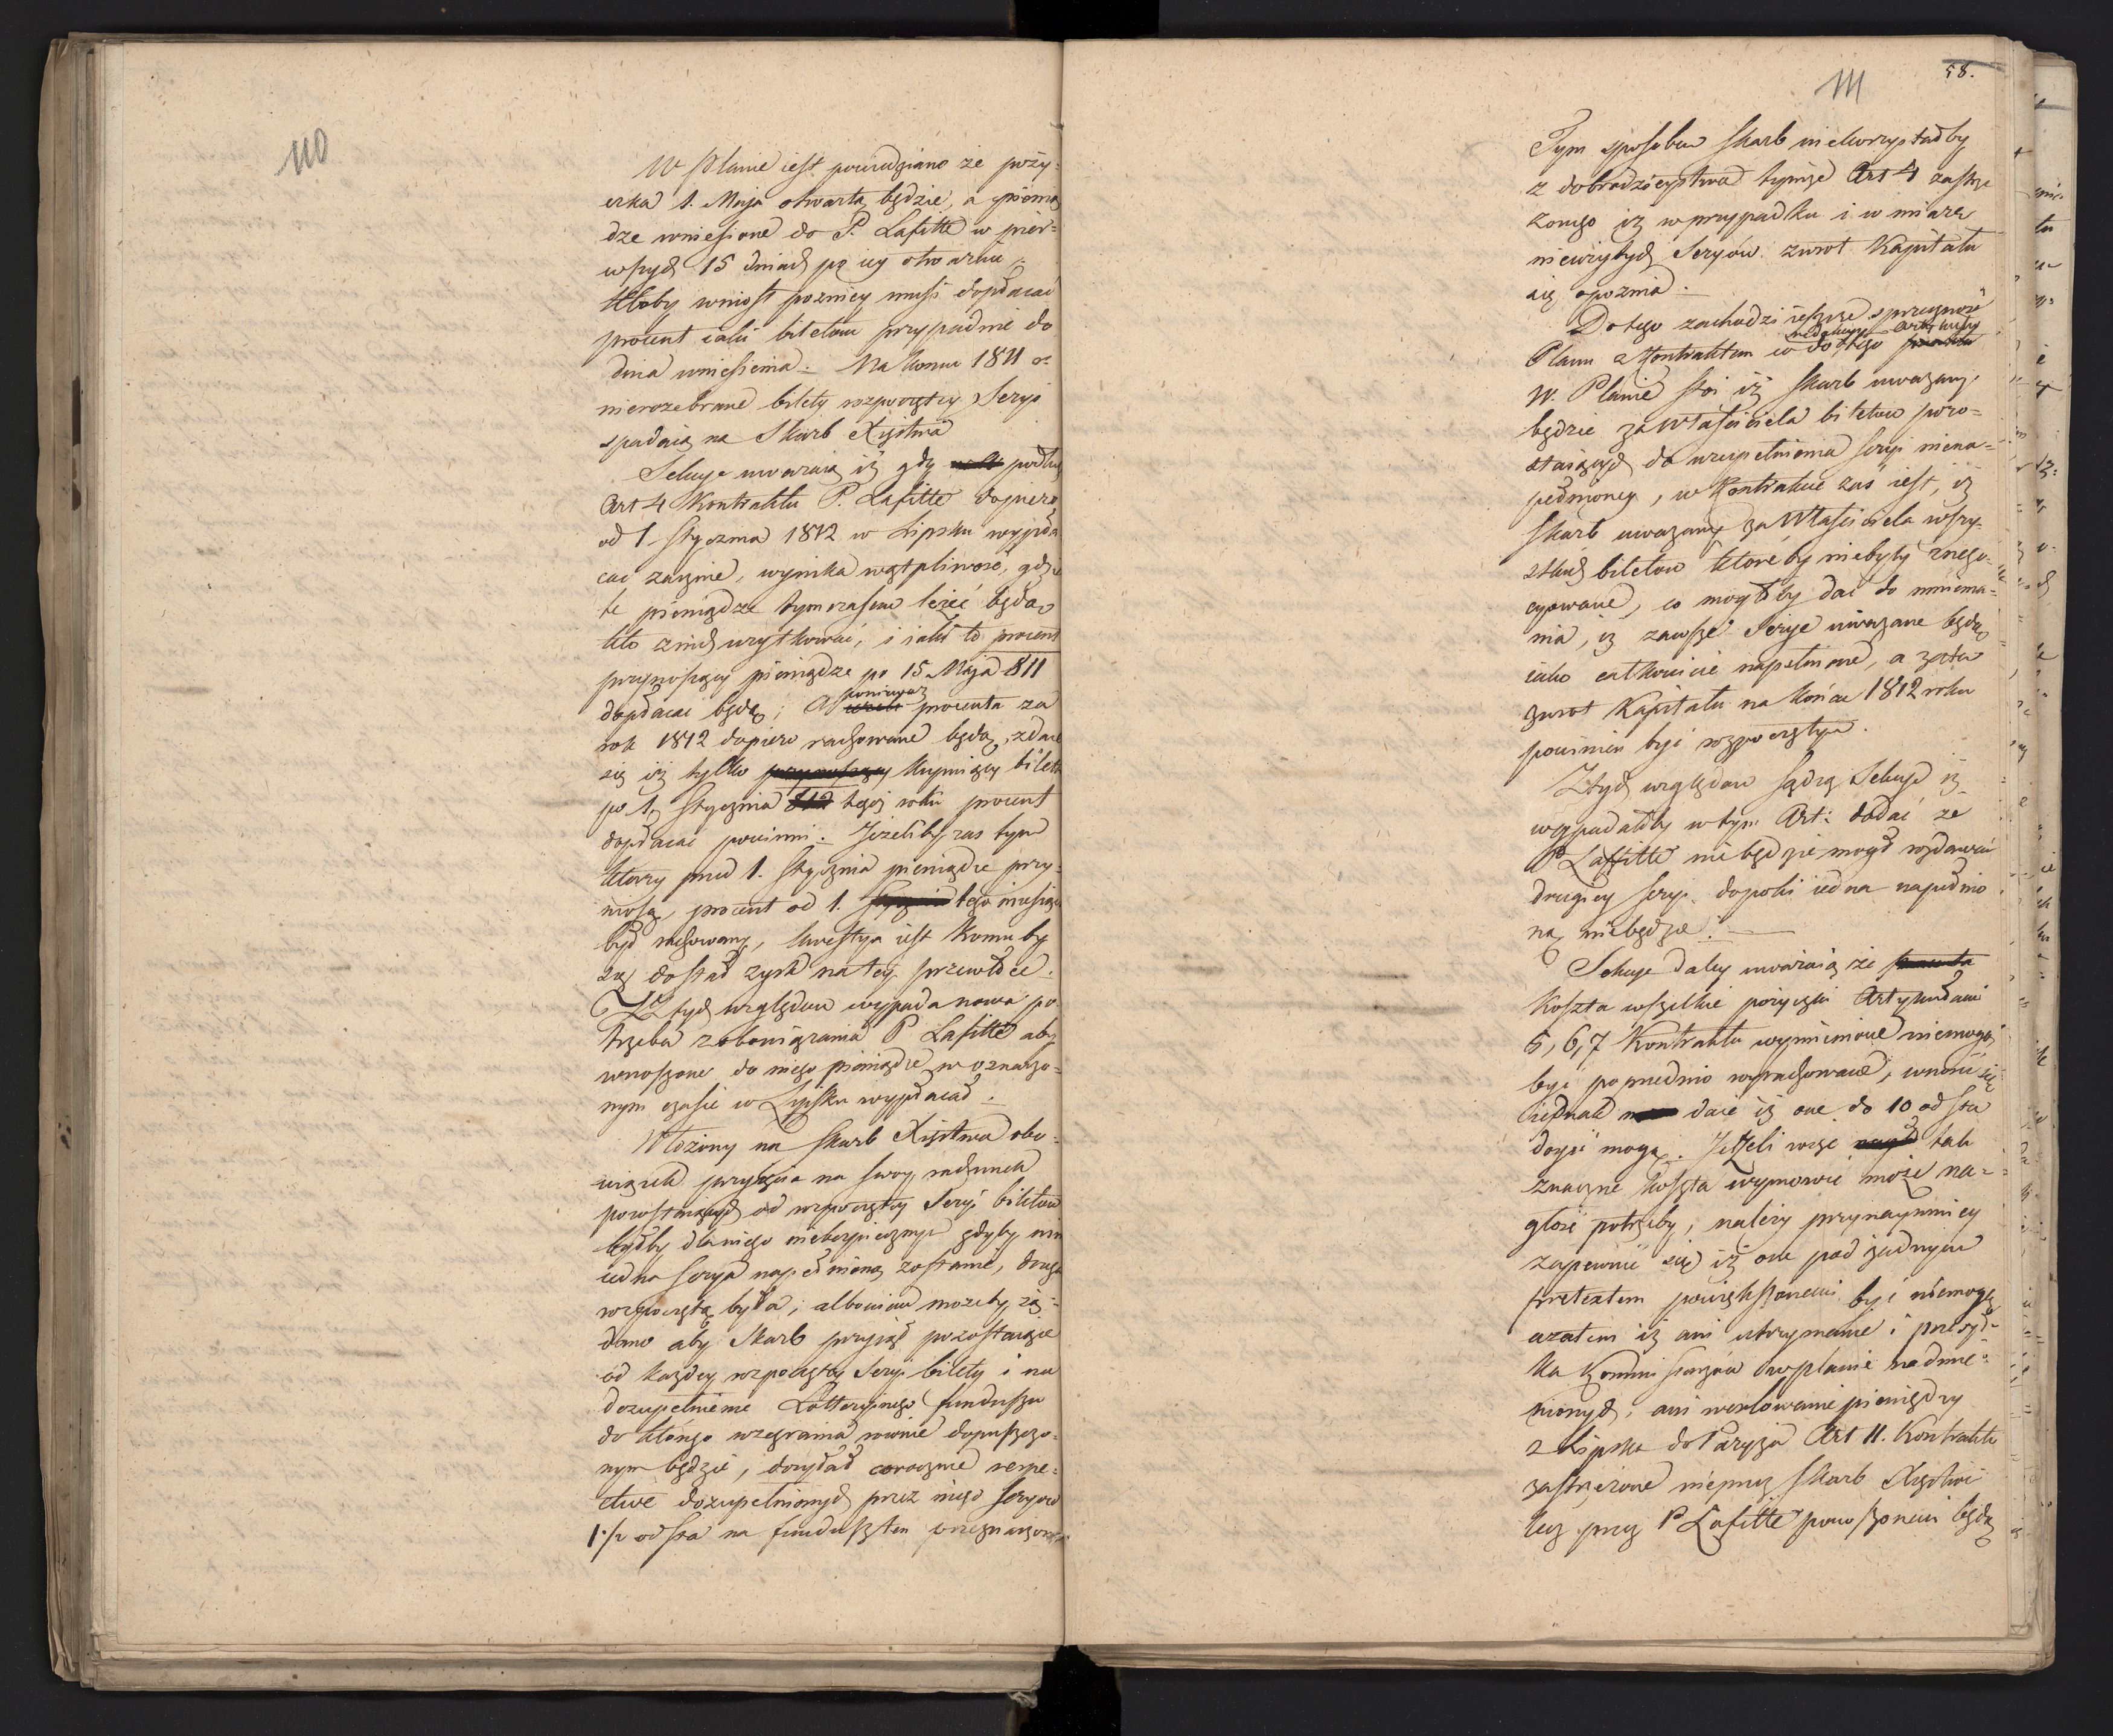 110
W Planie iest powiedziano że poży-
czka 1. Maja otwartą będzie, a pienią
dze wniesione do P. Lafitte w pier-
wszych 15 dniach po iey otwarciu
Ktoby wniosł pozniey musi dopłacać
procent iaki biletom przypadnie do
dnia wniesienia. Na koncu 1811 r
nierozebrane bilety rozpoczętey Seryi
spadaią na Skarb Xięstwa
Sekcye uważaią iż gdy podług
Art 4 Kontraktu P. Lafitte dopiero
od 1 Stycznia 1812 w Lipsku wypła
cać zacznie, wynika wątpliwość, gdzie
te pieniądze tymczasem leżeć będą,
kto z nich użytkować, i iaki to procent
przynoszący pieniądze po 15 Maja 811
dopłacać będą; ponieważ procenta za
rok 1812 dopiero rachowane będą, zdaie
się iż tylko kupuiący bilety
po 1 Stycznia tegoż roku procent
dopłacać powinni. Jeżeliby zas tym
ktorzy przed 1. Stycznia pieniądze przy-
niosą, procent od 1. tego miesiąca
był rachowany, kwestya iest komu by
się dostał zysk na tey przewłoce.
Z tych względow wypada nowa po
trzeba zobowiązania P Lafitte aby
wnoszone do niego pieniądze w oznaczo-
nym czasie w Lipsku wypłacał.
Włożony na Skarb Xięstwa obo-
wiązek przyięcia na swoy rachunek
pozostaiących od rozpoczętey Seryi biletow
byłby dla niego niebezpiecznym gdyby nim
iedna Serya napełnioną zostanie, druga
rozpoczętą była; albowiem możeby żą-
dano aby Skarb przyiął pozostaiące
od każdey rozpoczętey Seryi bilety i na
dozupełnienie Lotteryinego funduszu
do którego wzegrania rownie dopuszczo-
nym będzie, dorzucał corocznie respe-
ctive dozupełnionych przez niego Seryow
1 1/2 od sta na fundusz ten przeznaczone
58.
111
Tym sposobem Skarb niekorzystałby
z dobrodzieystwa tymże Art 4 zastrze
żonego iż w przypadku i w miarę
niewzitych Seryow zwrot Kapitału
się opoznia.
Do tego zachodzi ieszcze sprzeczność
Planu z Kontraktem co do tego Artykułu
W. Planie stoi iż Skarb uważany
będzie za Właściciela biletow pozo-
staiących do uzupełnienia Seryi niena-
pełnioney, w Kontrakcie zas iest, iż
Skarb uważany za Właściciela wszy-
stkich biletow ktoreby niebyły znego-
cyowane, co mogłoby dać do mniema-
nia, iż zawsze Serye uważane będą
iako całkowicie napełnione, a zatem
zwrot Kapitału na końcu 1812 roku
powinien być rozpoczętym.
Z tych względow sądzą Sekcye iż
wypadałby w tym Art: dodać że
P Laffitte nie będzie mogł rozdawać
drugiey Seryi dopoki iedna napełnio
ną niebędzie.
Sekcye daley uważaią że
Koszta wszelkie pożyczki Artykułami
5, 6, 7 Kontraktu wymienione niemogą
być poprzednio wyrachowane, wnosić się
iednak daie iż one do 10 od sta
doyść mogą. Jeżeli więc tak
znaczne koszta wymowić może na-
głość potrzeby, należy przynaymniey
zapewnić się iż one pod żadnym
pretextem powiększonemi być niemogą
azatem iż ani utrzymanie i przesył-
ka Kommissarzow w planie nadmie-
nionych, ani wexlowanie pieniędzy
z Lipska do Paryża Art 11. Kontraktu
zastrzeżone nieprzez Skarb Xięstwa
lecz przez P Lafitte ponoszonemi będą